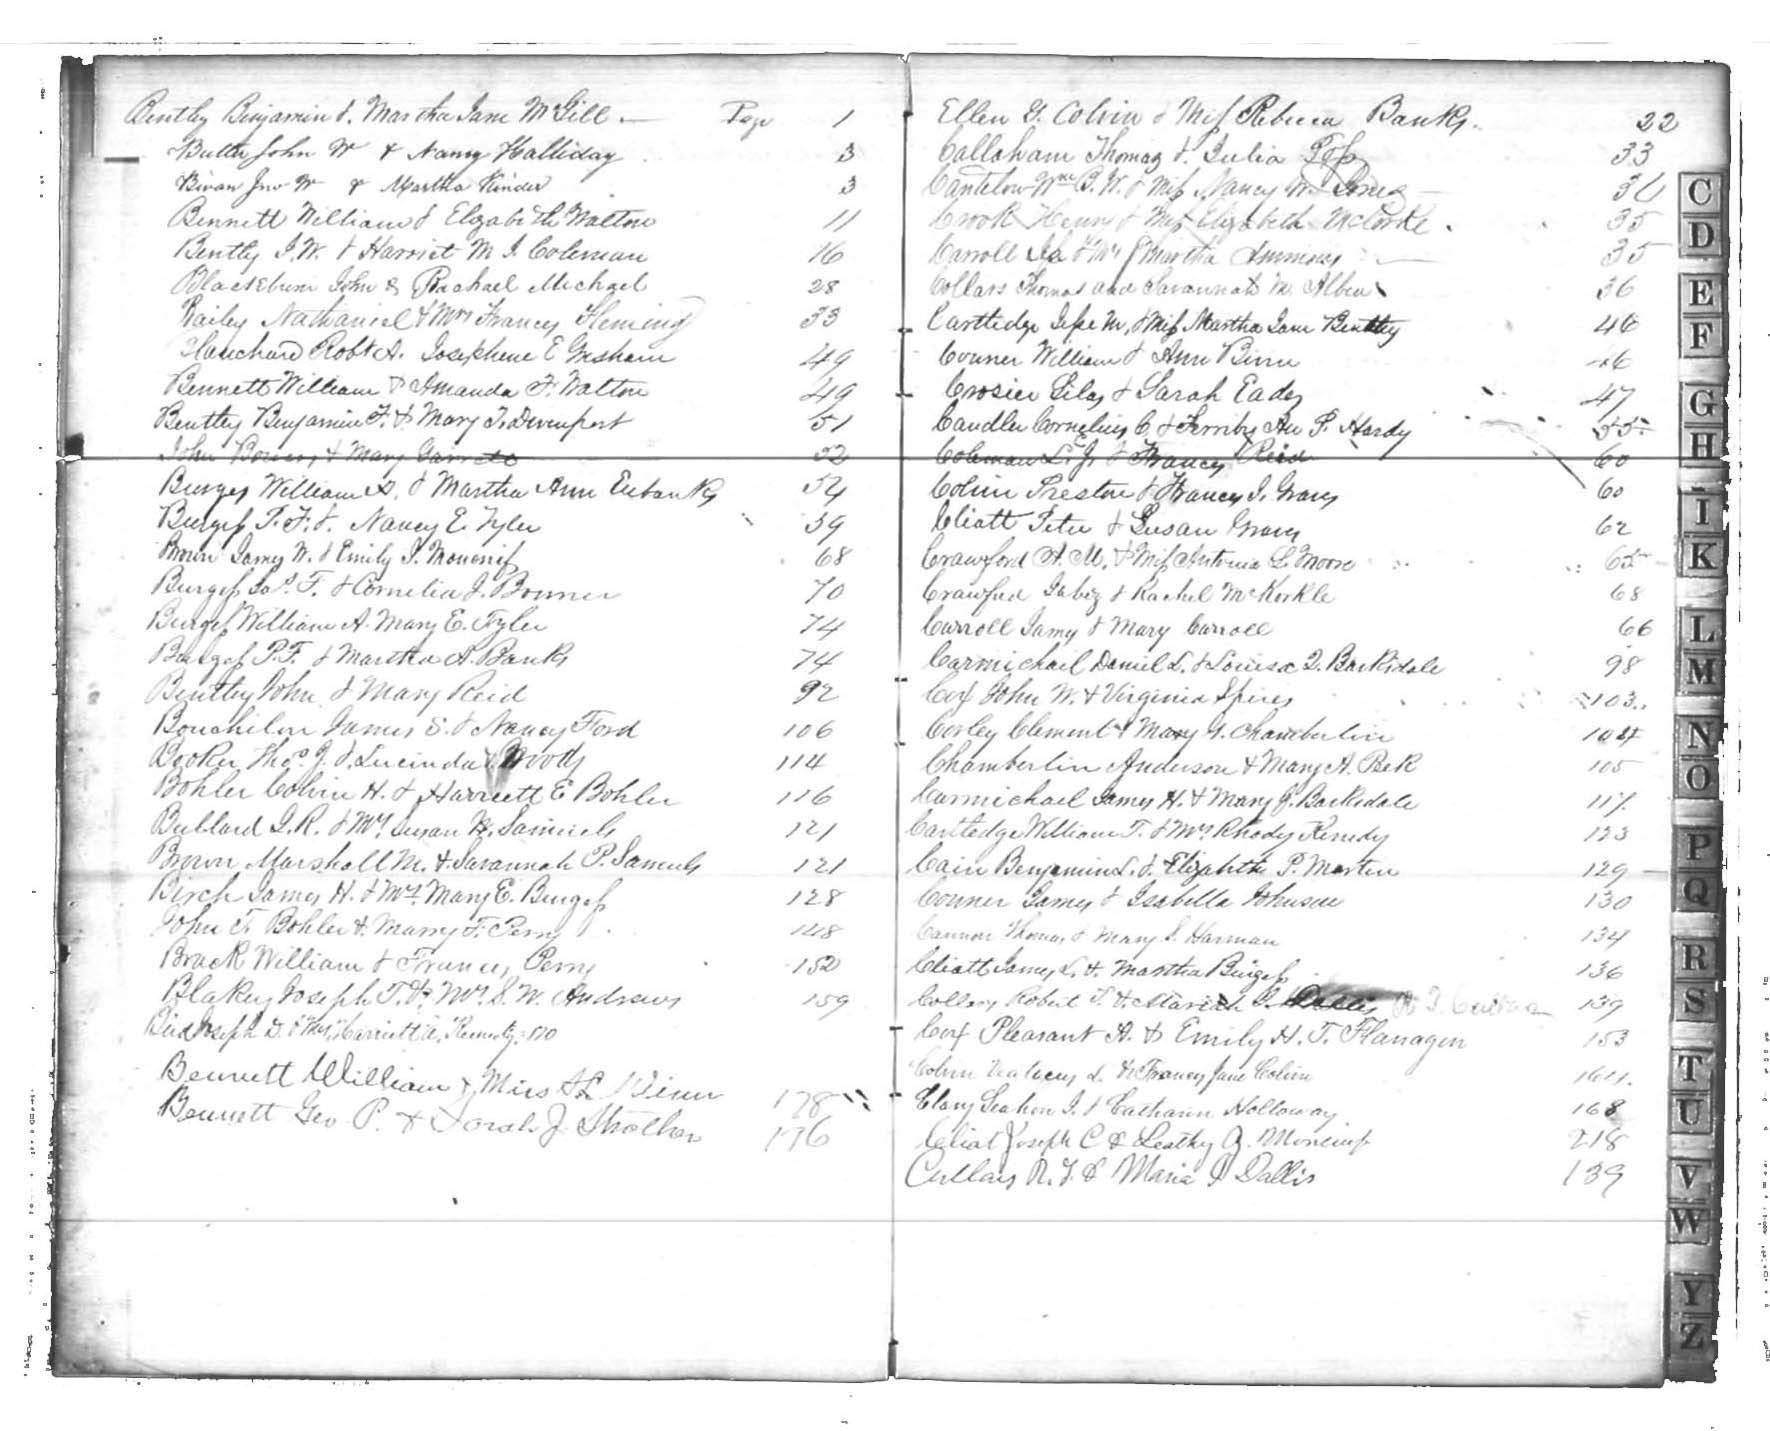 Bentley Benjamin & Martha Jane McGill — Page 1
Butler John W & Nancy Halliday 3
Bivan Jno W & Martha Kinder 3
Bennett William & Elizabeth Walton 11
Bently J. W. & Harriet M J. Coleman 16
Blackburn John & Rachael Michael 28
Bailey Nathaniel & Mrs Frances Fleming 33
Blanchard Robt A. Josephene E Gresham 49
Bennett William & Amanda F. Walton 49
Bentley Benjamin F. & Mary T. Devenport 51
John & Mary Garrett 52
Burges William A. & Martha Ann Eubanks 54
Burgess T. F. & Nancy E. Tyler 59
Brown James W. & Emily 68
Burgess F. & Cornelia J. Bonner 70
Burgess William A. Mary E. Tyler 74
Burgess P. F. & Martha A. Banks 74
Bentley John & Mary Reid 92
James & Nancy Ford 106
Booker Thos. J. & Lucinda Woods 114
Bohler Colvin H. & Harriett E Bohler 116
Bullard J. R. & Mrs Susan Samuels 121
Brown Marshall M. & Savannah P. Samuels 121
Birch James H. & Mrs. Mary E. Burgess 128
John T. Bohler & Marry F. Perry 148
Brack William & Frances Perry 152
Blakey Joseph T. & Mrs. S. W. Andrews 159
Bird Joseph D. & Mrs. Harriett A. 170
Bennett William & Miss Winn 178
Bennett Geo P. & Sarah J. Shother 176
Ellen G. Colvin & Miss Rebecca Banks. 22
Callaham Thomas & Julia 33
Cantelow Wm B. W. & Miss Nancy W. Jones
Crook Henry & Miss Elizabeth McCorkle. 35
Carroll & Mrs Martha Ammons 35
Collars Thomas and Savannah M. Albea 36
Cartledge Jesse M. & Miss Martha Jane Bentley 46
Conner William & Ann Binn 46
Crosier Silas & Sarah Eades 47
Candler Cornelius C & Ferriby P. Hardy 55
Coleman L. J. & Frances Reid 60
Colvin Preston & Frances J. Graves 60
Cliatt Peter & Susan Graves 62
Crawford A. M. & Miss Antonia L. Moore 65
Crawford Jabez & Rachel McKorkle 68
Carroll James & Mary Carroll 66
Carmichail Daniel L. & Louisa Barksdale 98
Cox John W. & Virginia Spires 103
Corley Clement & Mary J. Chamberlin 104
Chamberlin Anderson & Mary A. Peek 105
Carmichael James H. & Mary J. Barksdale 117
Cartledge William T. & Mrs Rhody Kenedy 123
Cain Benjamin L. & Elizabeth P. Martin 129
Conner James & Isabella Johnson 130
Cannon Thomas & Mary S. Harman 134
Cliatt James L. & Martha Burgess 136
Collars Robert T. & Mariah J. Dallis 139
Cox Pleasant A. & Emily H. T. Flanagin 153
Colvin & Frances Jane Colvin 164
Clary Seaborn J. & Catharin Holloway 168
Cliat Joseph C & Leathy A. 218
Cullars R. T. & Maria J Dallis 139
C
D
E
F
G
H
I
K
L
M
N
O
P
Q
R
S
T
U
V
W
Y
Z